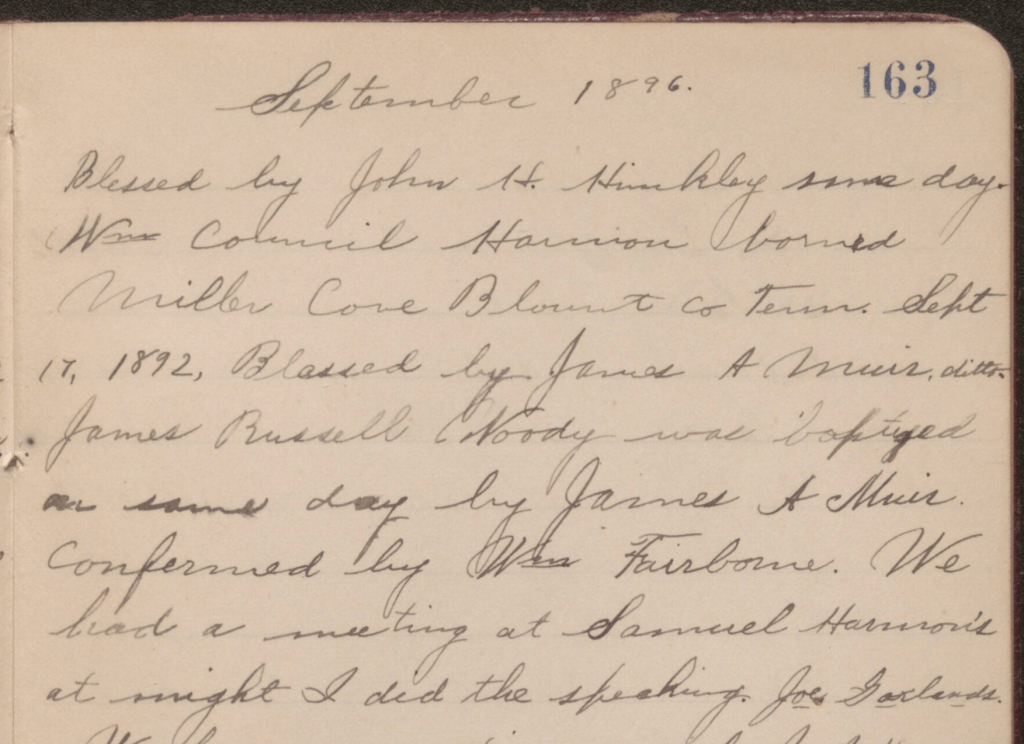 163
September 1896.
Blessed by John H. Hinckley same day.
Wm Council Harmon borned
Miller Cove Blount Co Tenn. Sept
17, 1892, Blessed by James A Muir, ditto.
James Russell Woody was baptyed
on same day by James A Muir.
Confermed by Wm Fairborne. We
had a meeting at Samuel Harmon's
at night I did the speaking. Joe Garlands.